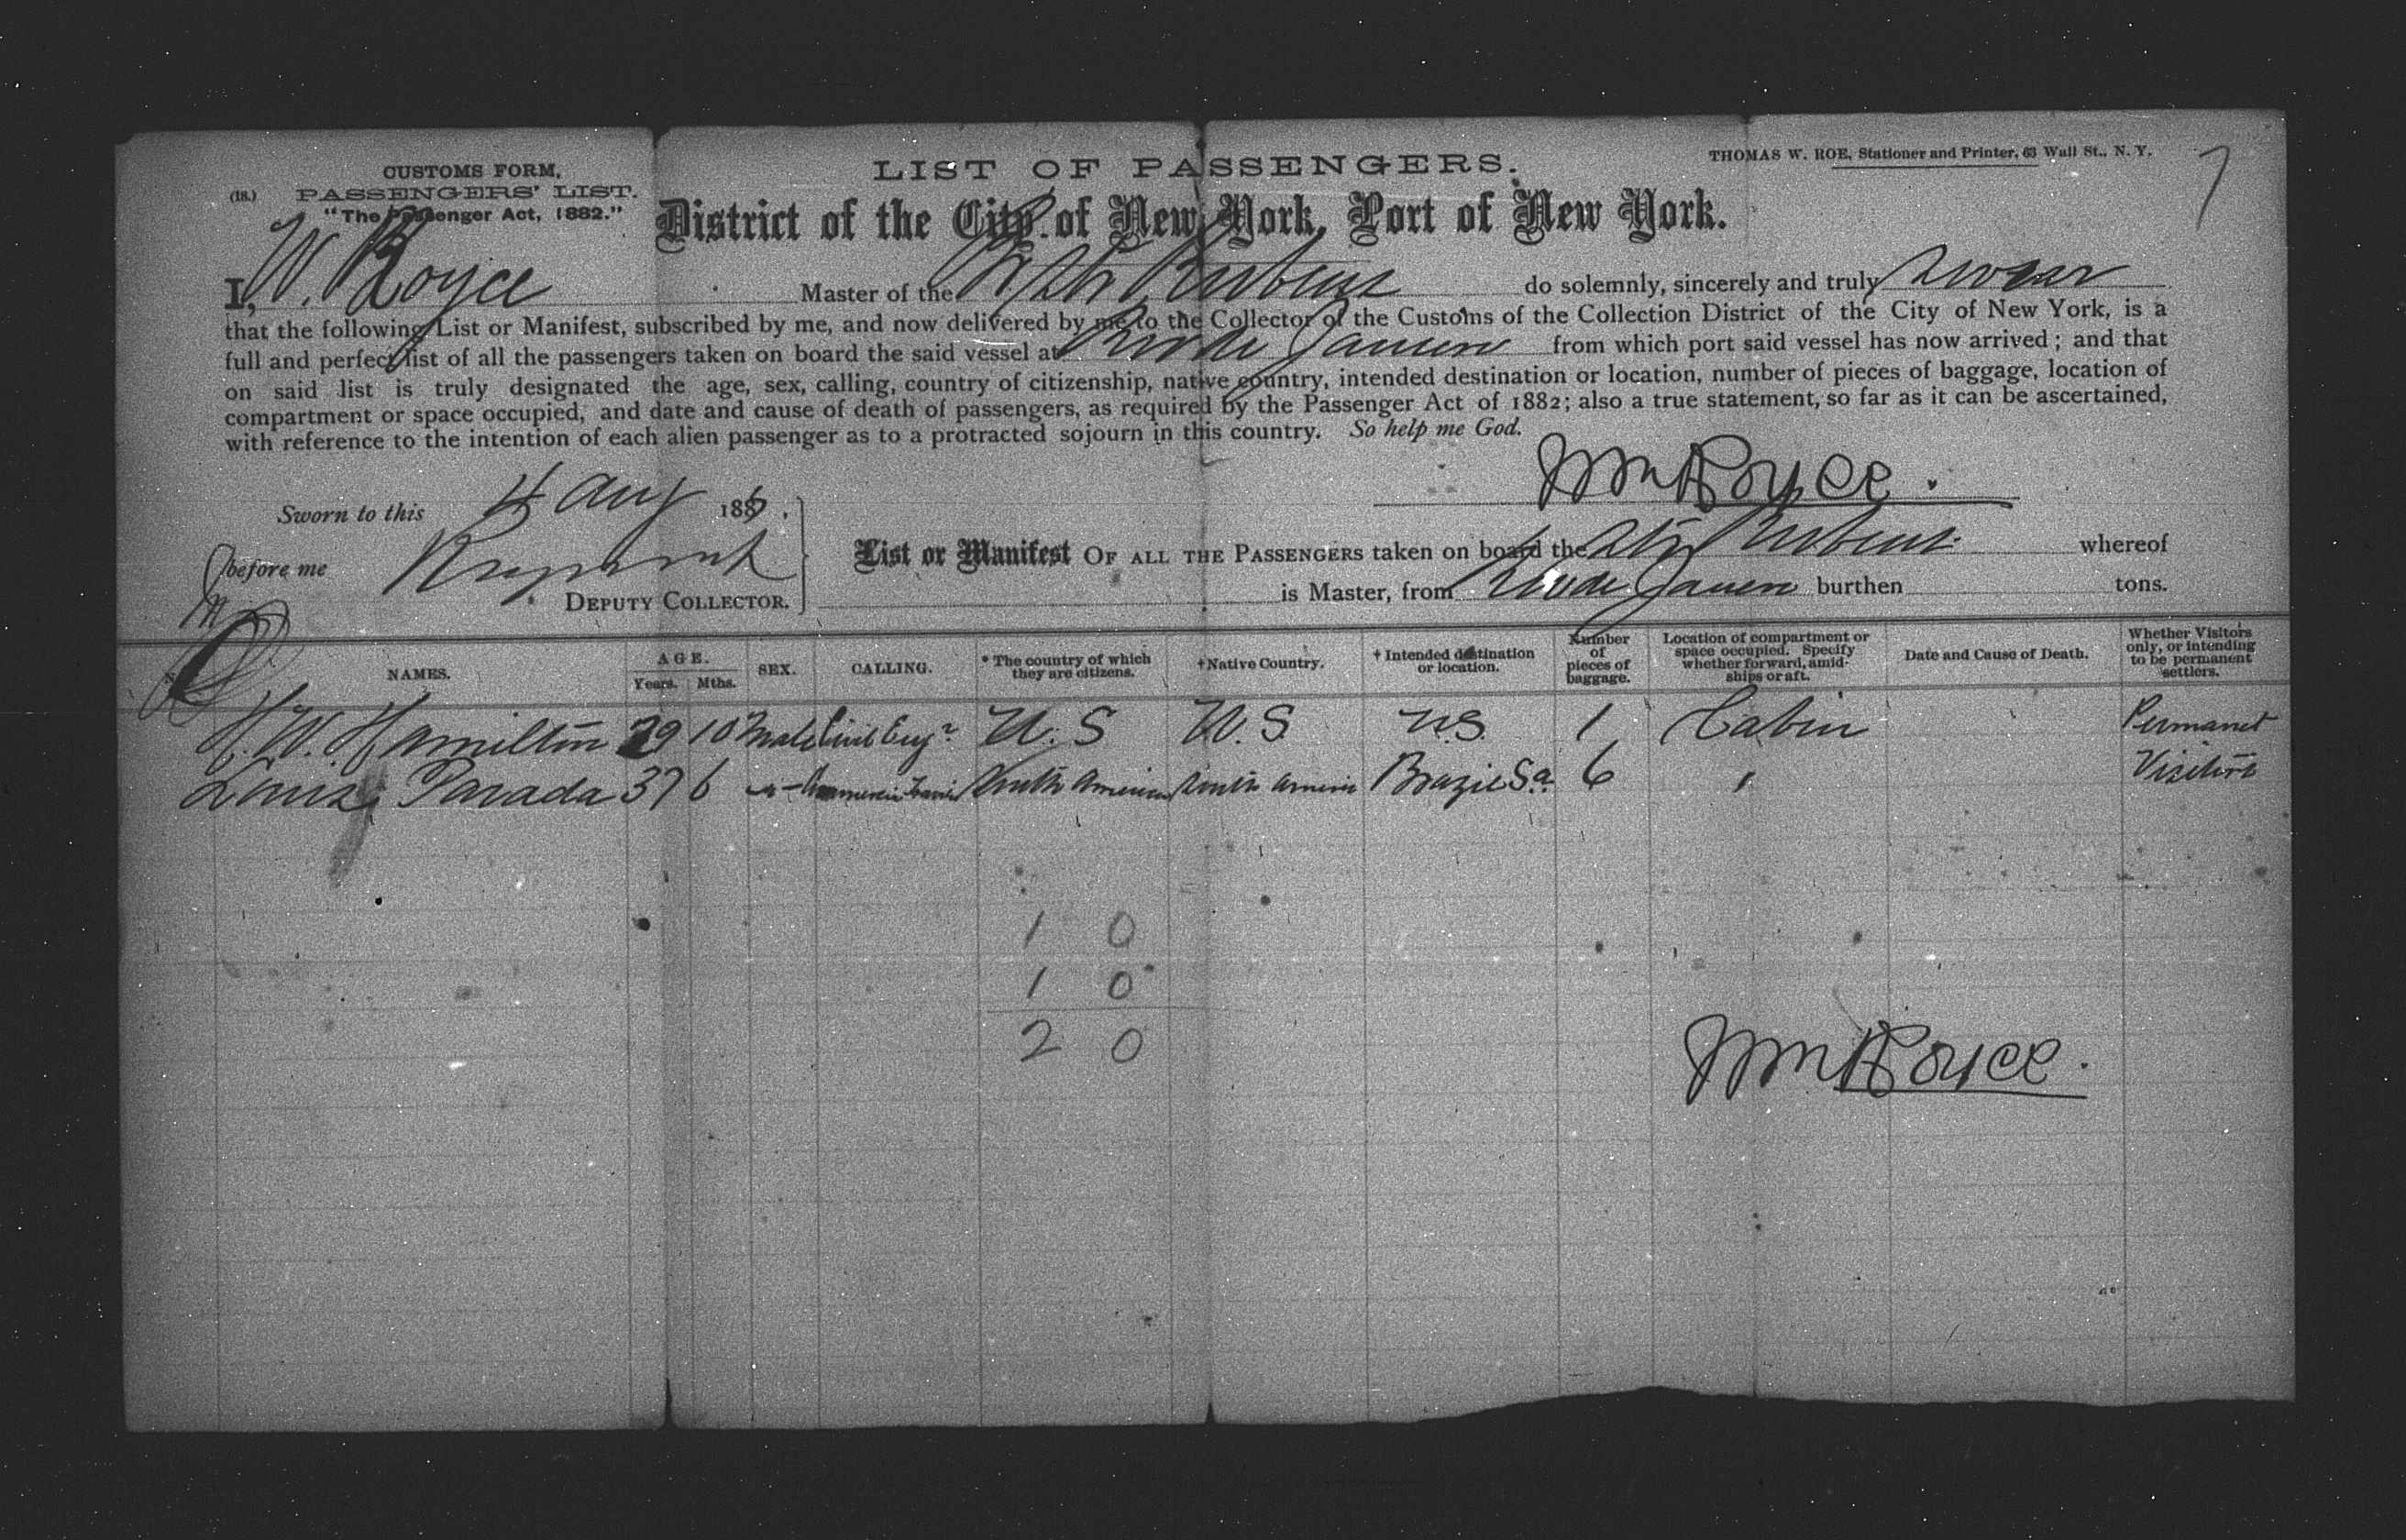 CUSTOMS FORM,
(18.) PASSENGERS' LIST.
"The Passenger Act, 1882."
LIST OF PASSENGERS.
THOMAS W. ROE, Stationer and Printer, 63 Wall St., N. Y.
7
District of the City of New York, Port of New York.
I, W. Royce Master of the Br Str Rubens do solemnly, sincerely and truly swear
that the following List or Manifest, subscribed by me, and now delivered by me to the Collector of the Customs of the Collection District of the City of New York, is a
full and perfect list of all the passengers taken on board the said vessel at Rio de Janeiro from which port said vessel has now arrived; and that
on said list is truly designated the age, sex, calling, country of citizenship, native country, intended destination or location, number of pieces of baggage, location of
compartment or space occupied, and date and cause of death of passengers, as required by the Passenger Act of 1882; also a true statement, so far as it can be ascertained,
with reference to the intention of each alien passenger as to a protracted sojourn in this country. So help me God.
Wm Royce.
Sworn to this 4 Aug 188
before me
DEPUTY COLLECTOR.
List or Manifest OF ALL THE PASSENGERS taken on board the Str Rubens whereof
is Master, from Rio de Janeiro burthen tons.
NAMES. AGE. Years. Mths. SEX. CALLING. * The country of which they are citizens. † Native Country. † Intended destination or location. Number of pieces of baggage. Location of compartment or space occupied. Specify whether forward, amidships or aft. Date and Cause of Death. Whether Visitors only, or intending to be permanent settlers.
H. W. Hamilton 29 10 Male Civil Engr U. S U. S. U.S. 1 Cabin Permanet
Louis Parada 37 6 South America South America Brazil Sa. 6 " Visitors
1 0
1 0
2 0
Wm Royce.